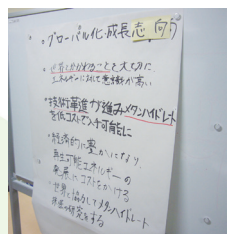 ・グローバル化・成長志向
・世界とかかわることを大切に
エネルギーに対して意識が高い
・技術革進が進みメタンハイドレート
を低コストで入手可能に
・経済的に豊かになり、
再生可能エネルギーの
発展にコストをかける
・世界と協力してメタンハイドレート
研究をする